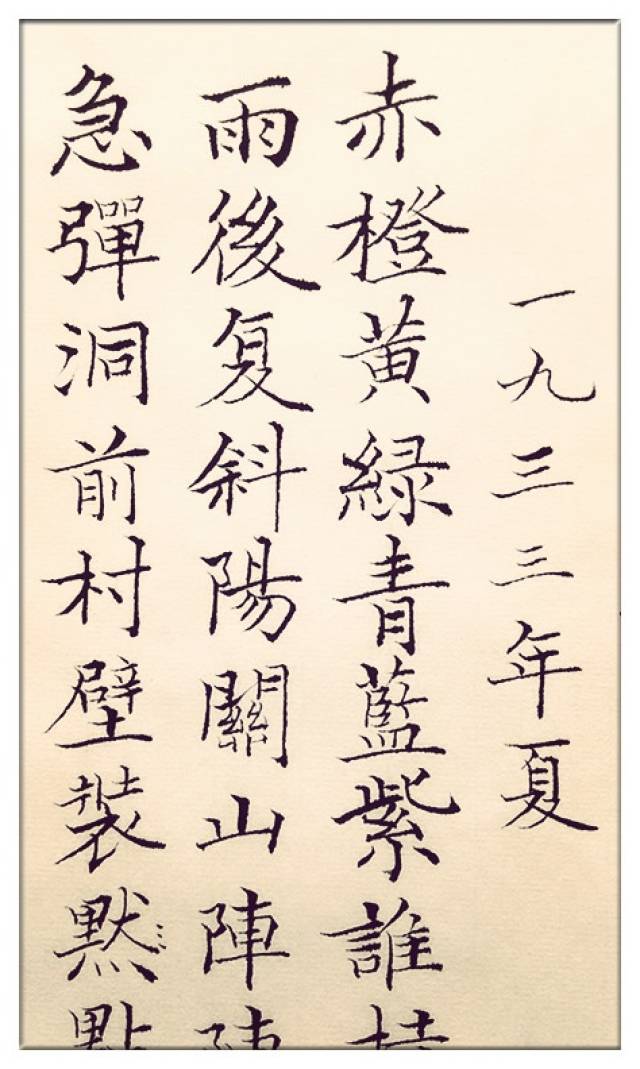 一九三三年夏
赤橙黄緑青藍紫誰
雨後复斜陽關山陣
急彈洞前村壁裝黙